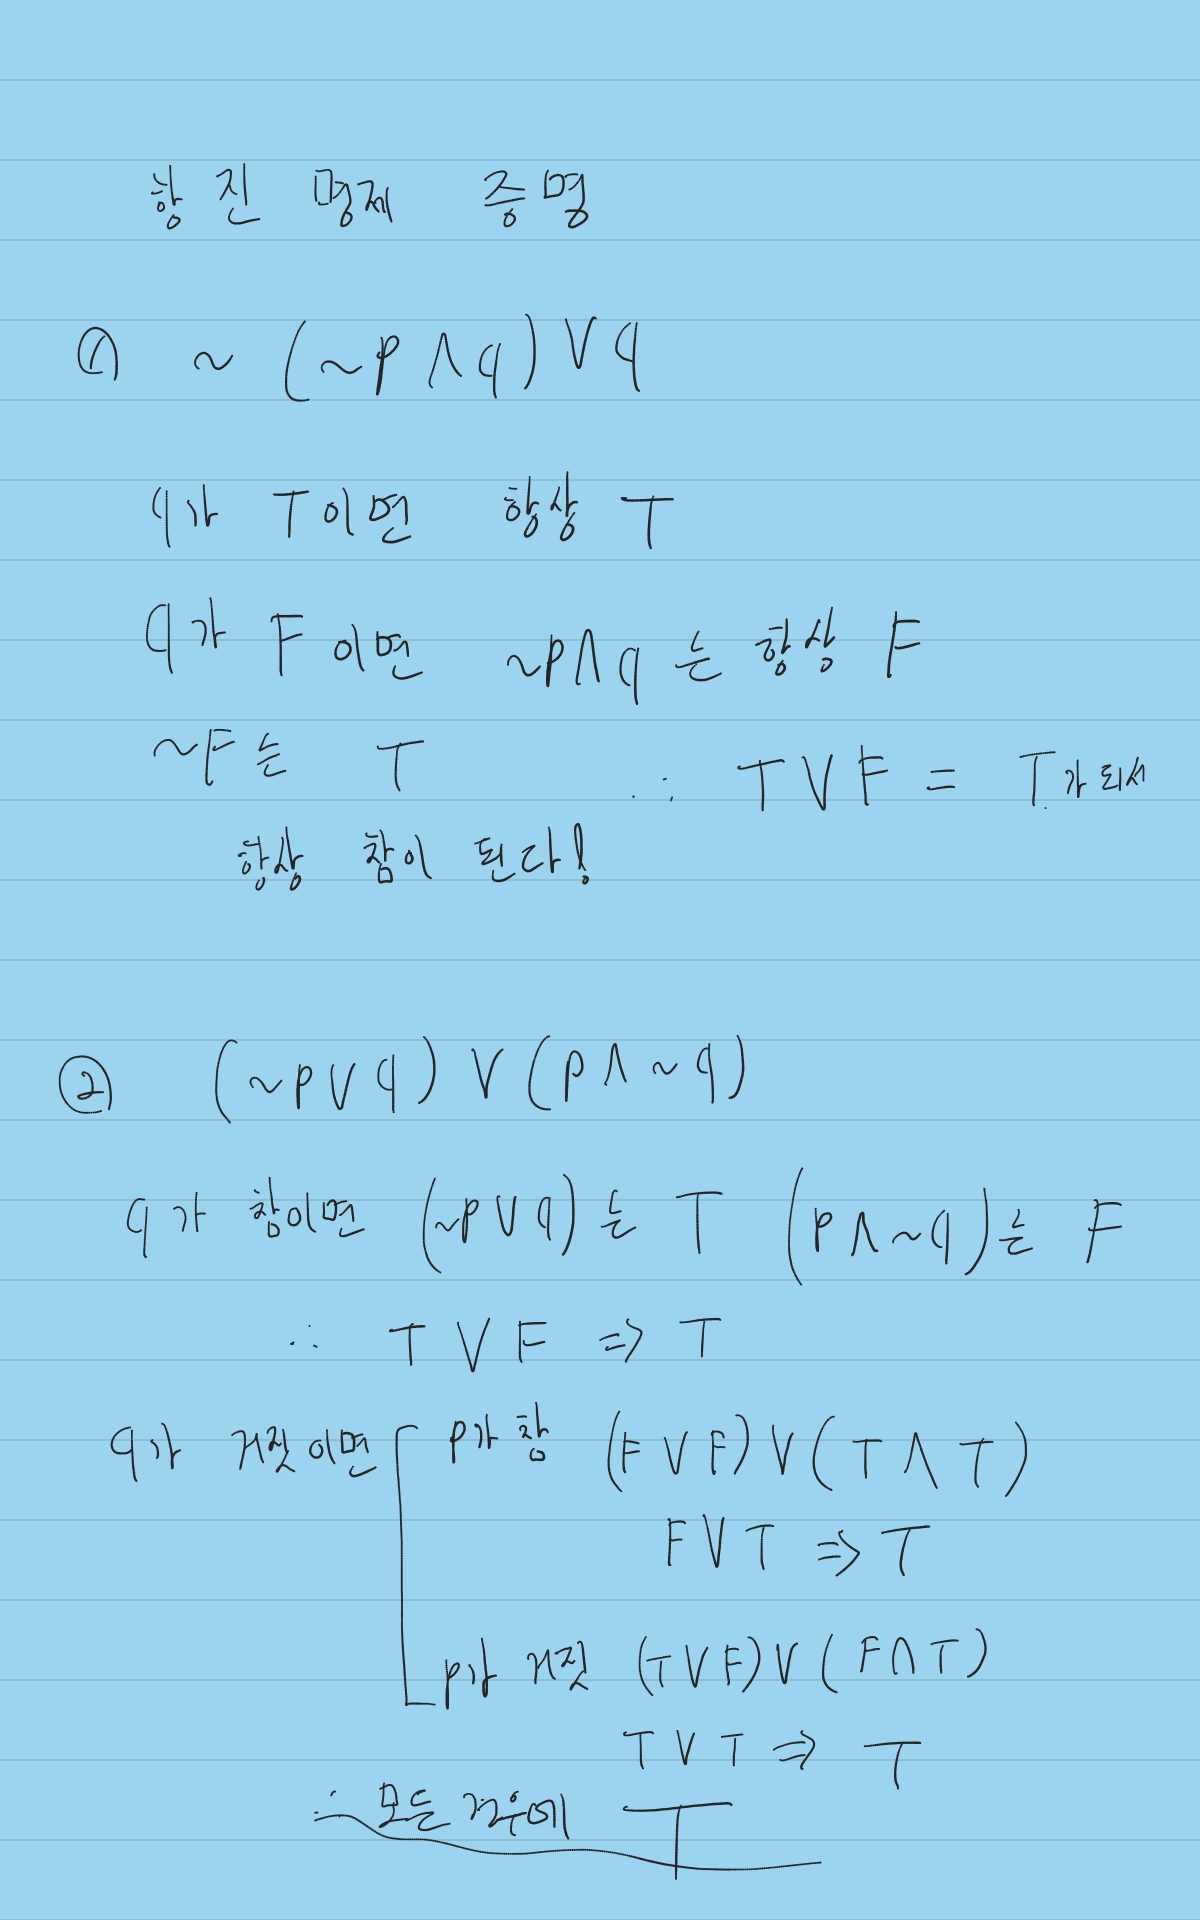 항진 명제 증명
① ~(~p∧q)∨q
q가 T이면 항상 T
q가 F이면 ~p∧q는 항상 F
~F는 T ∴ T∨F = T가 되서
항상 참이 된다!
② (~p∨q)∨(p∧~q)
q가 참이면 (~p∨q)는 T (p∧~q)는 F
∴ T∨F ⇒ T
q가 거짓이면 p가 참 (F∨F)∨(T∧T)
F∨T ⇒ T
p가 거짓 (T∨F)∨(F∧T)
T∨T ⇒ T
∴ 모든 경우에 T